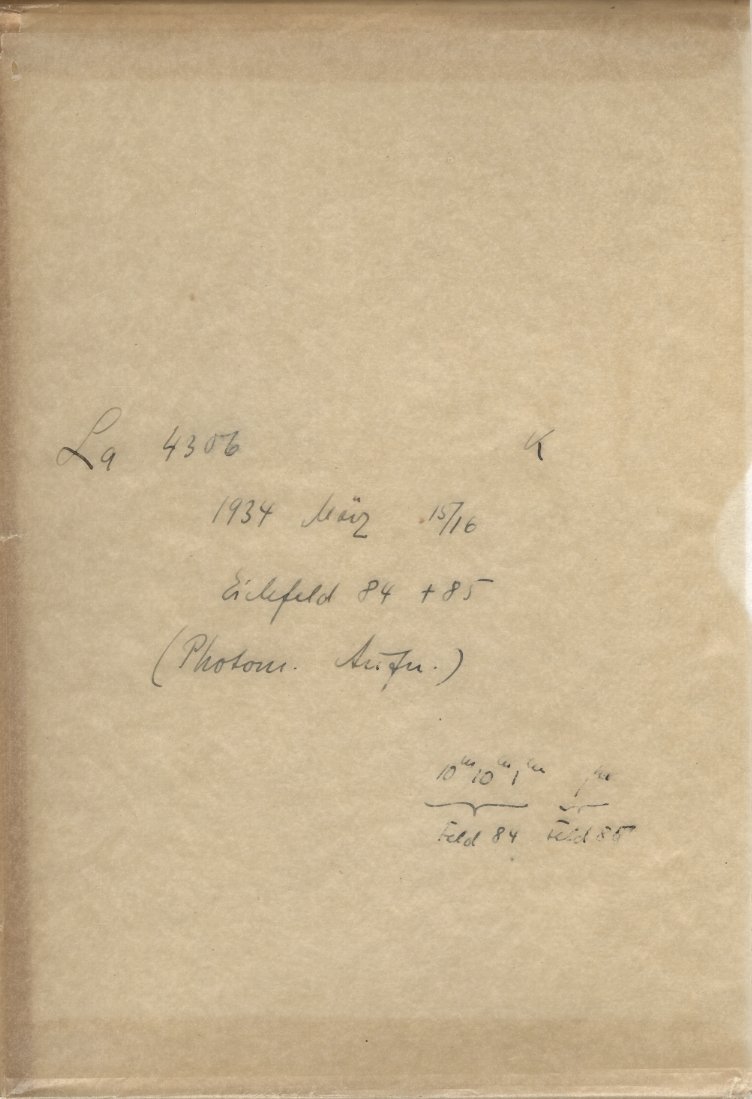 La 4306 K
1934 März 15/16
Eichfeld 84 + 85
(Photom. Aufn.)
10ᵐ 10ᵐ 1ᵐ 1ᵐ
Feld 84 Feld 85